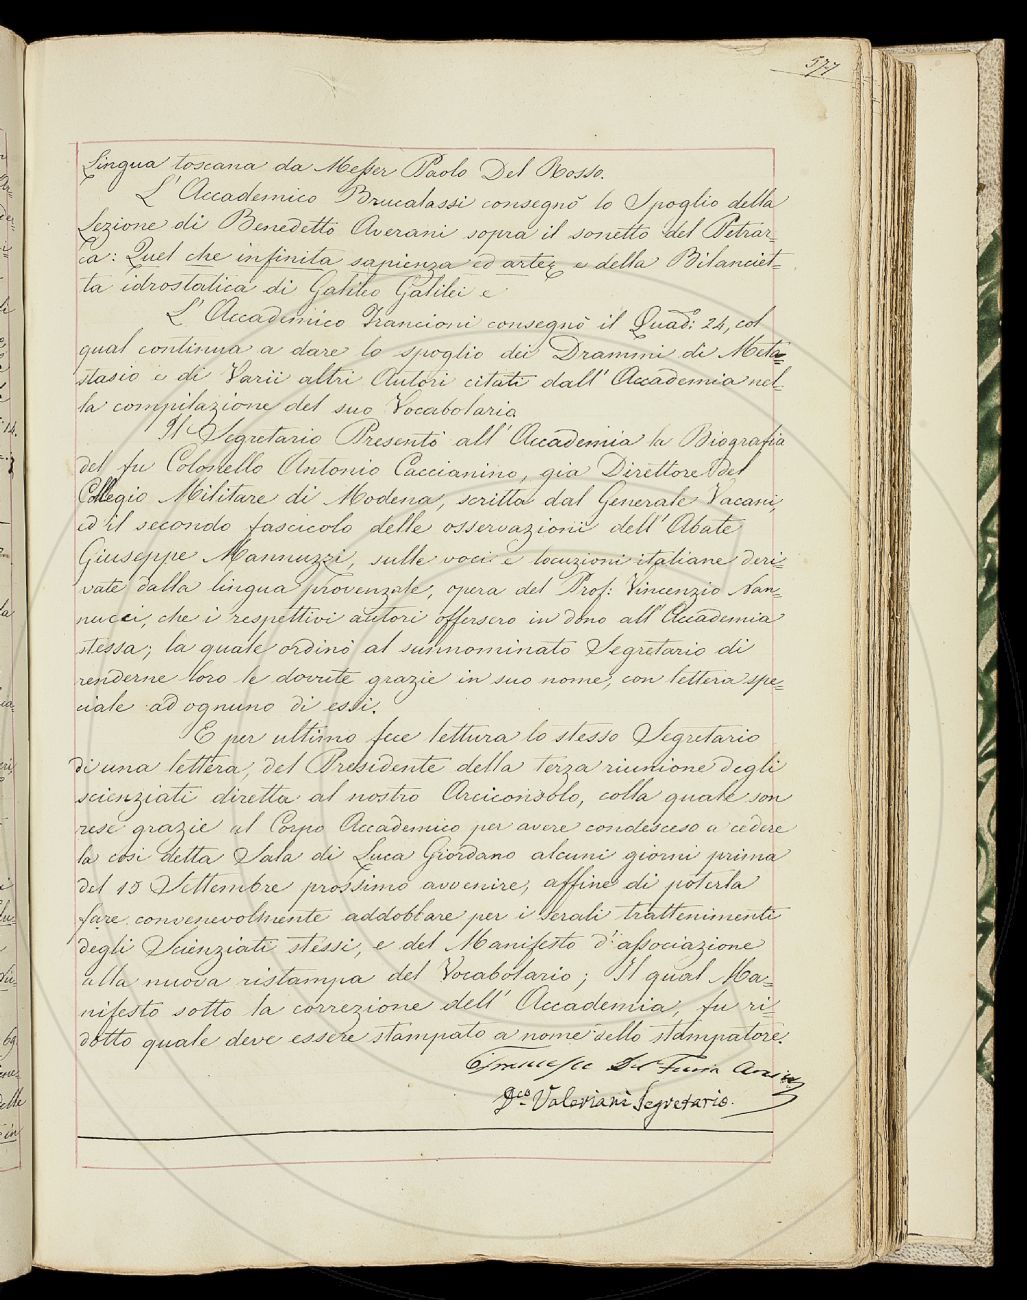 577
Lingua toscana da Messer Paolo Del Rosso.
L' Accademico Brucalassi consegnò lo Spoglio della
Lezione di Benedetto Averani sopra il sonetto del Petrar=
ca: Quel che infinita sapienza ed arte, e della Bilanciet=
ta idrostatica di Galileo Galilei e
L' Accademico Francioni consegnò il Quad: 24, col
qual continua a dare lo spoglio dei Drammi di Meta=
stasio e di Varii altri Autori citati dall' Accademia nel=
la compilazione del suo Vocabolario
Il Segretario Presentò all' Accademia la Biografia
del fu Colonello Antonio Caccianino, già Direttore del
Collegio Militare di Modena, scritta dal Generale Vacani,
ed il secondo fascicolo delle osservazioni dell' Abate
Giuseppe Mannuzzi, sulle voci e locuzioni italiane deri=
vate dalla lingua provenzale, opera del Prof: Vincenzio Nan=
nucci, che i respettivi autori offersero in dono all' Accademia
stessa; la quale ordinò al sunnominato Segretario di
renderne loro le dovute grazie in suo nome, con lettera spe=
ciale ad ognuno di essi.
E per ultimo fece lettura lo stesso Segretario
di una lettera, del Presidente della terza riunione degli
scienziati diretta al nostro Arciconsolo, colla quale son
rese grazie al Corpo Accademico per avere condesceso a cedere
la così detta Sala di Luca Giordano alcuni giorni prima
del 15 Settembre prossimo avvenire, affine di poterla
fare convenevolmente addobbare per i serali trattenimenti
degli Scienziati stessi, e del Manifesto d' associazione
alla nuova ristampa del Vocabolario; Il qual Ma=
nifesto sotto la correzione dell' Accademia, fu ri=
dotto quale deve essere stampato a nome dello stampatore.
Francesco Del Furia
Dco Valeriani Segretario.